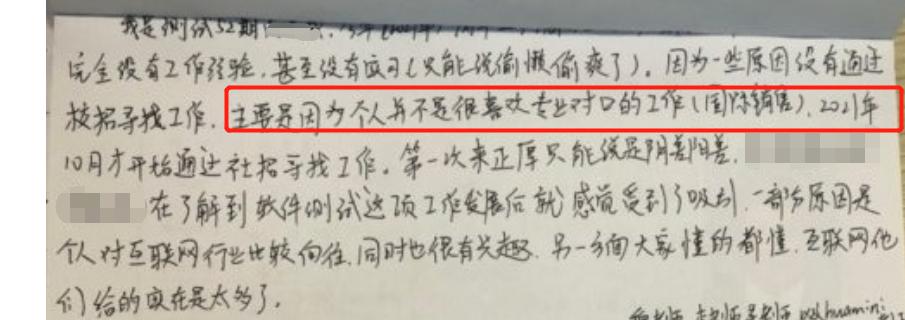 我是测试52期
完全没有工作经验,甚至没有实习(只能说偷懒偷爽了)。因为一些原因没有通过
校招寻找工作,主要是因为个人并不是很喜欢专业对口的工作(国际销售),2021年
10月才开始通过社招寻找工作。第一次来正厚只能说是阴差阳差,
在了解到软件测试这项工作发展后就感觉受到了吸引,一部分原因是
个人对互联网行业比较向往,同时也很有兴趣。另一方面大家懂的都懂,互联网他
们给的实在是太多了。